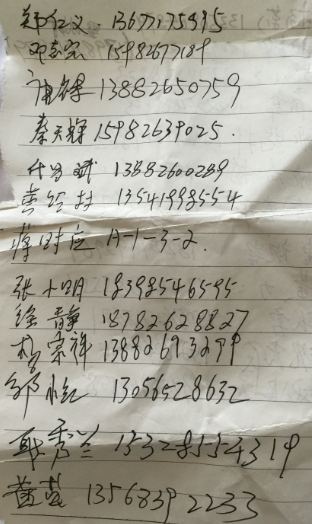 郑仁义 13677175995
邓志宗 15982677189
13882650759
秦天辉 15982639025.
13882600289
黄 13541998554
蒋时应 A-1-3-2.
张小明 18398546595
徐静 18782628827
杨宗祥 13882693299
邹小红 13056528632
耿秀兰 15328554319
黄莹 13568392233